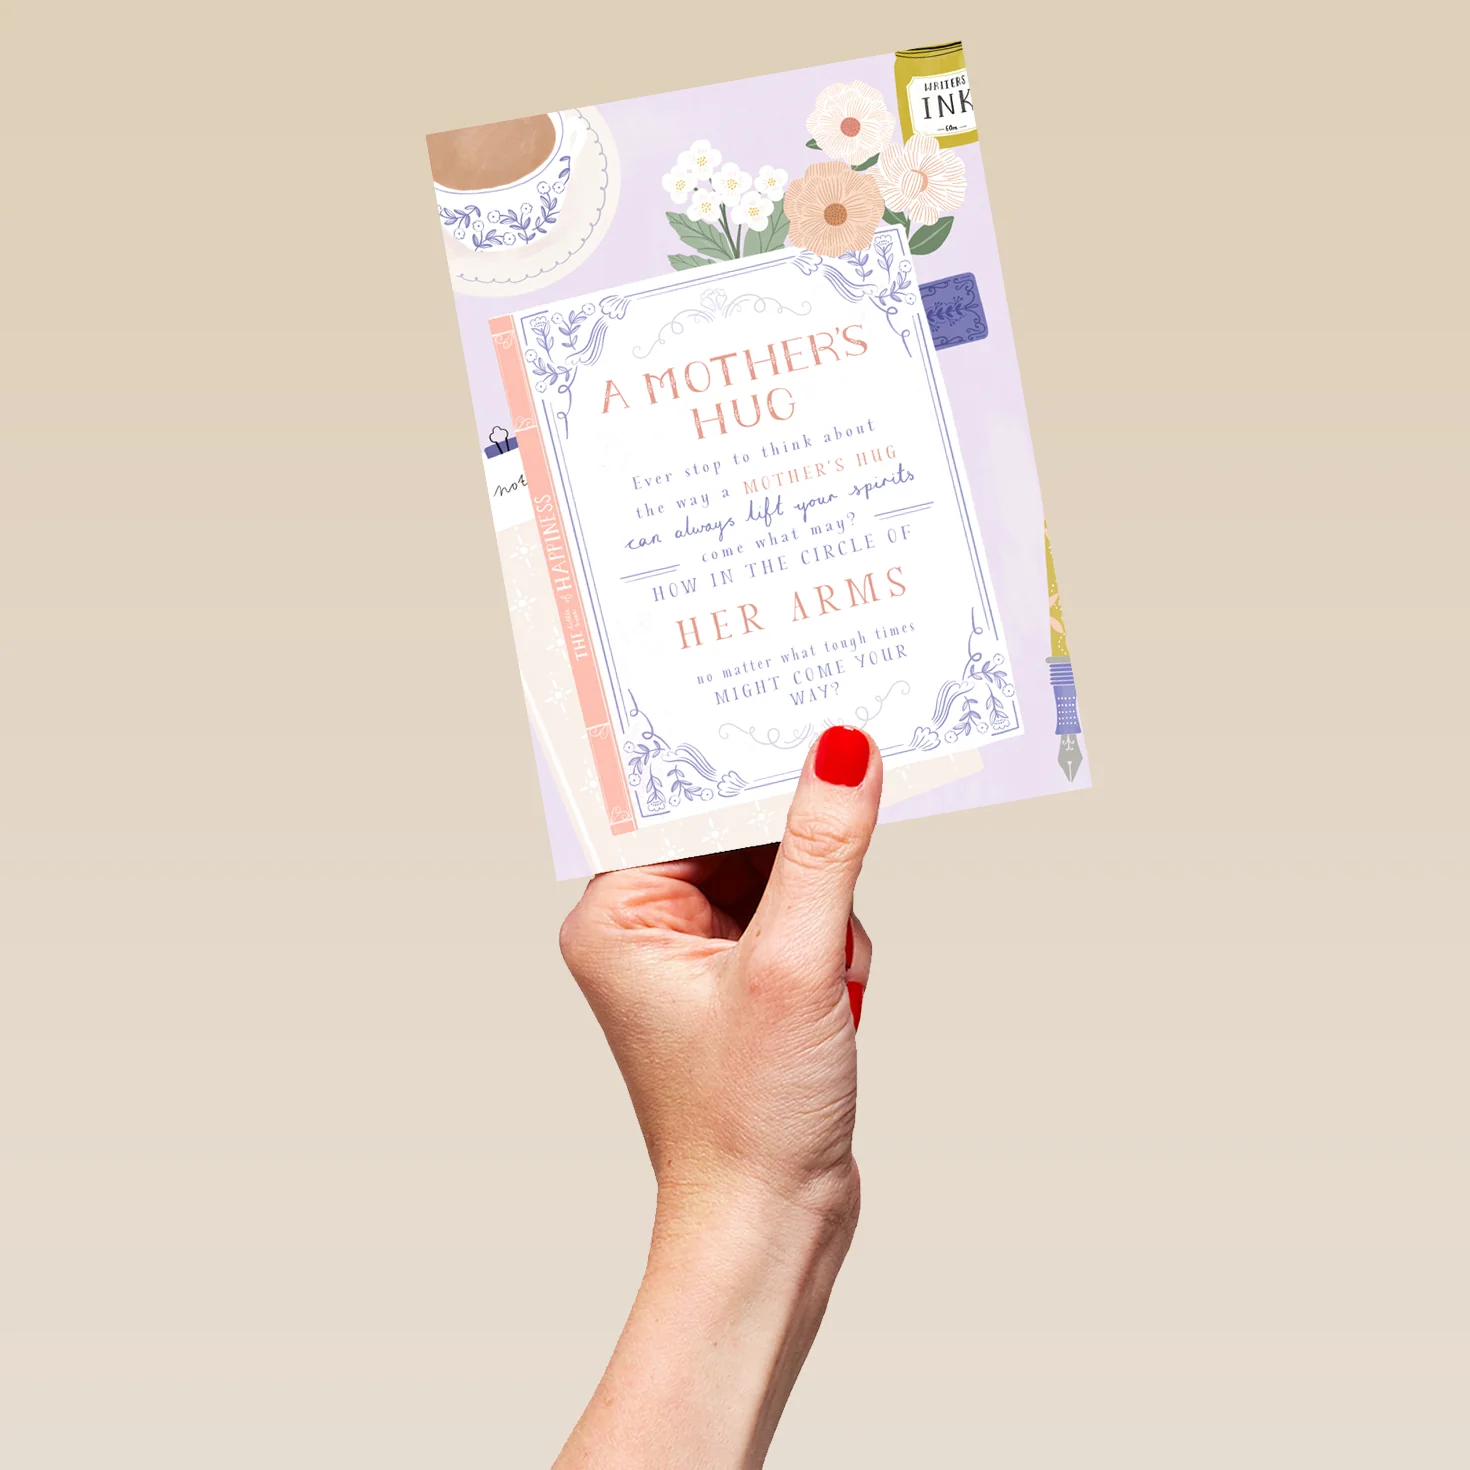 WRITERS
INK
60ml
A MOTHER'S
HUG
Ever stop to think about
the way a MOTHER'S HUG
can always lift your spirits
come what may?
HOW IN THE CIRCLE OF
HER ARMS
no matter what tough times
MIGHT COME YOUR
WAY?
not
THE little book of HAPPINESS